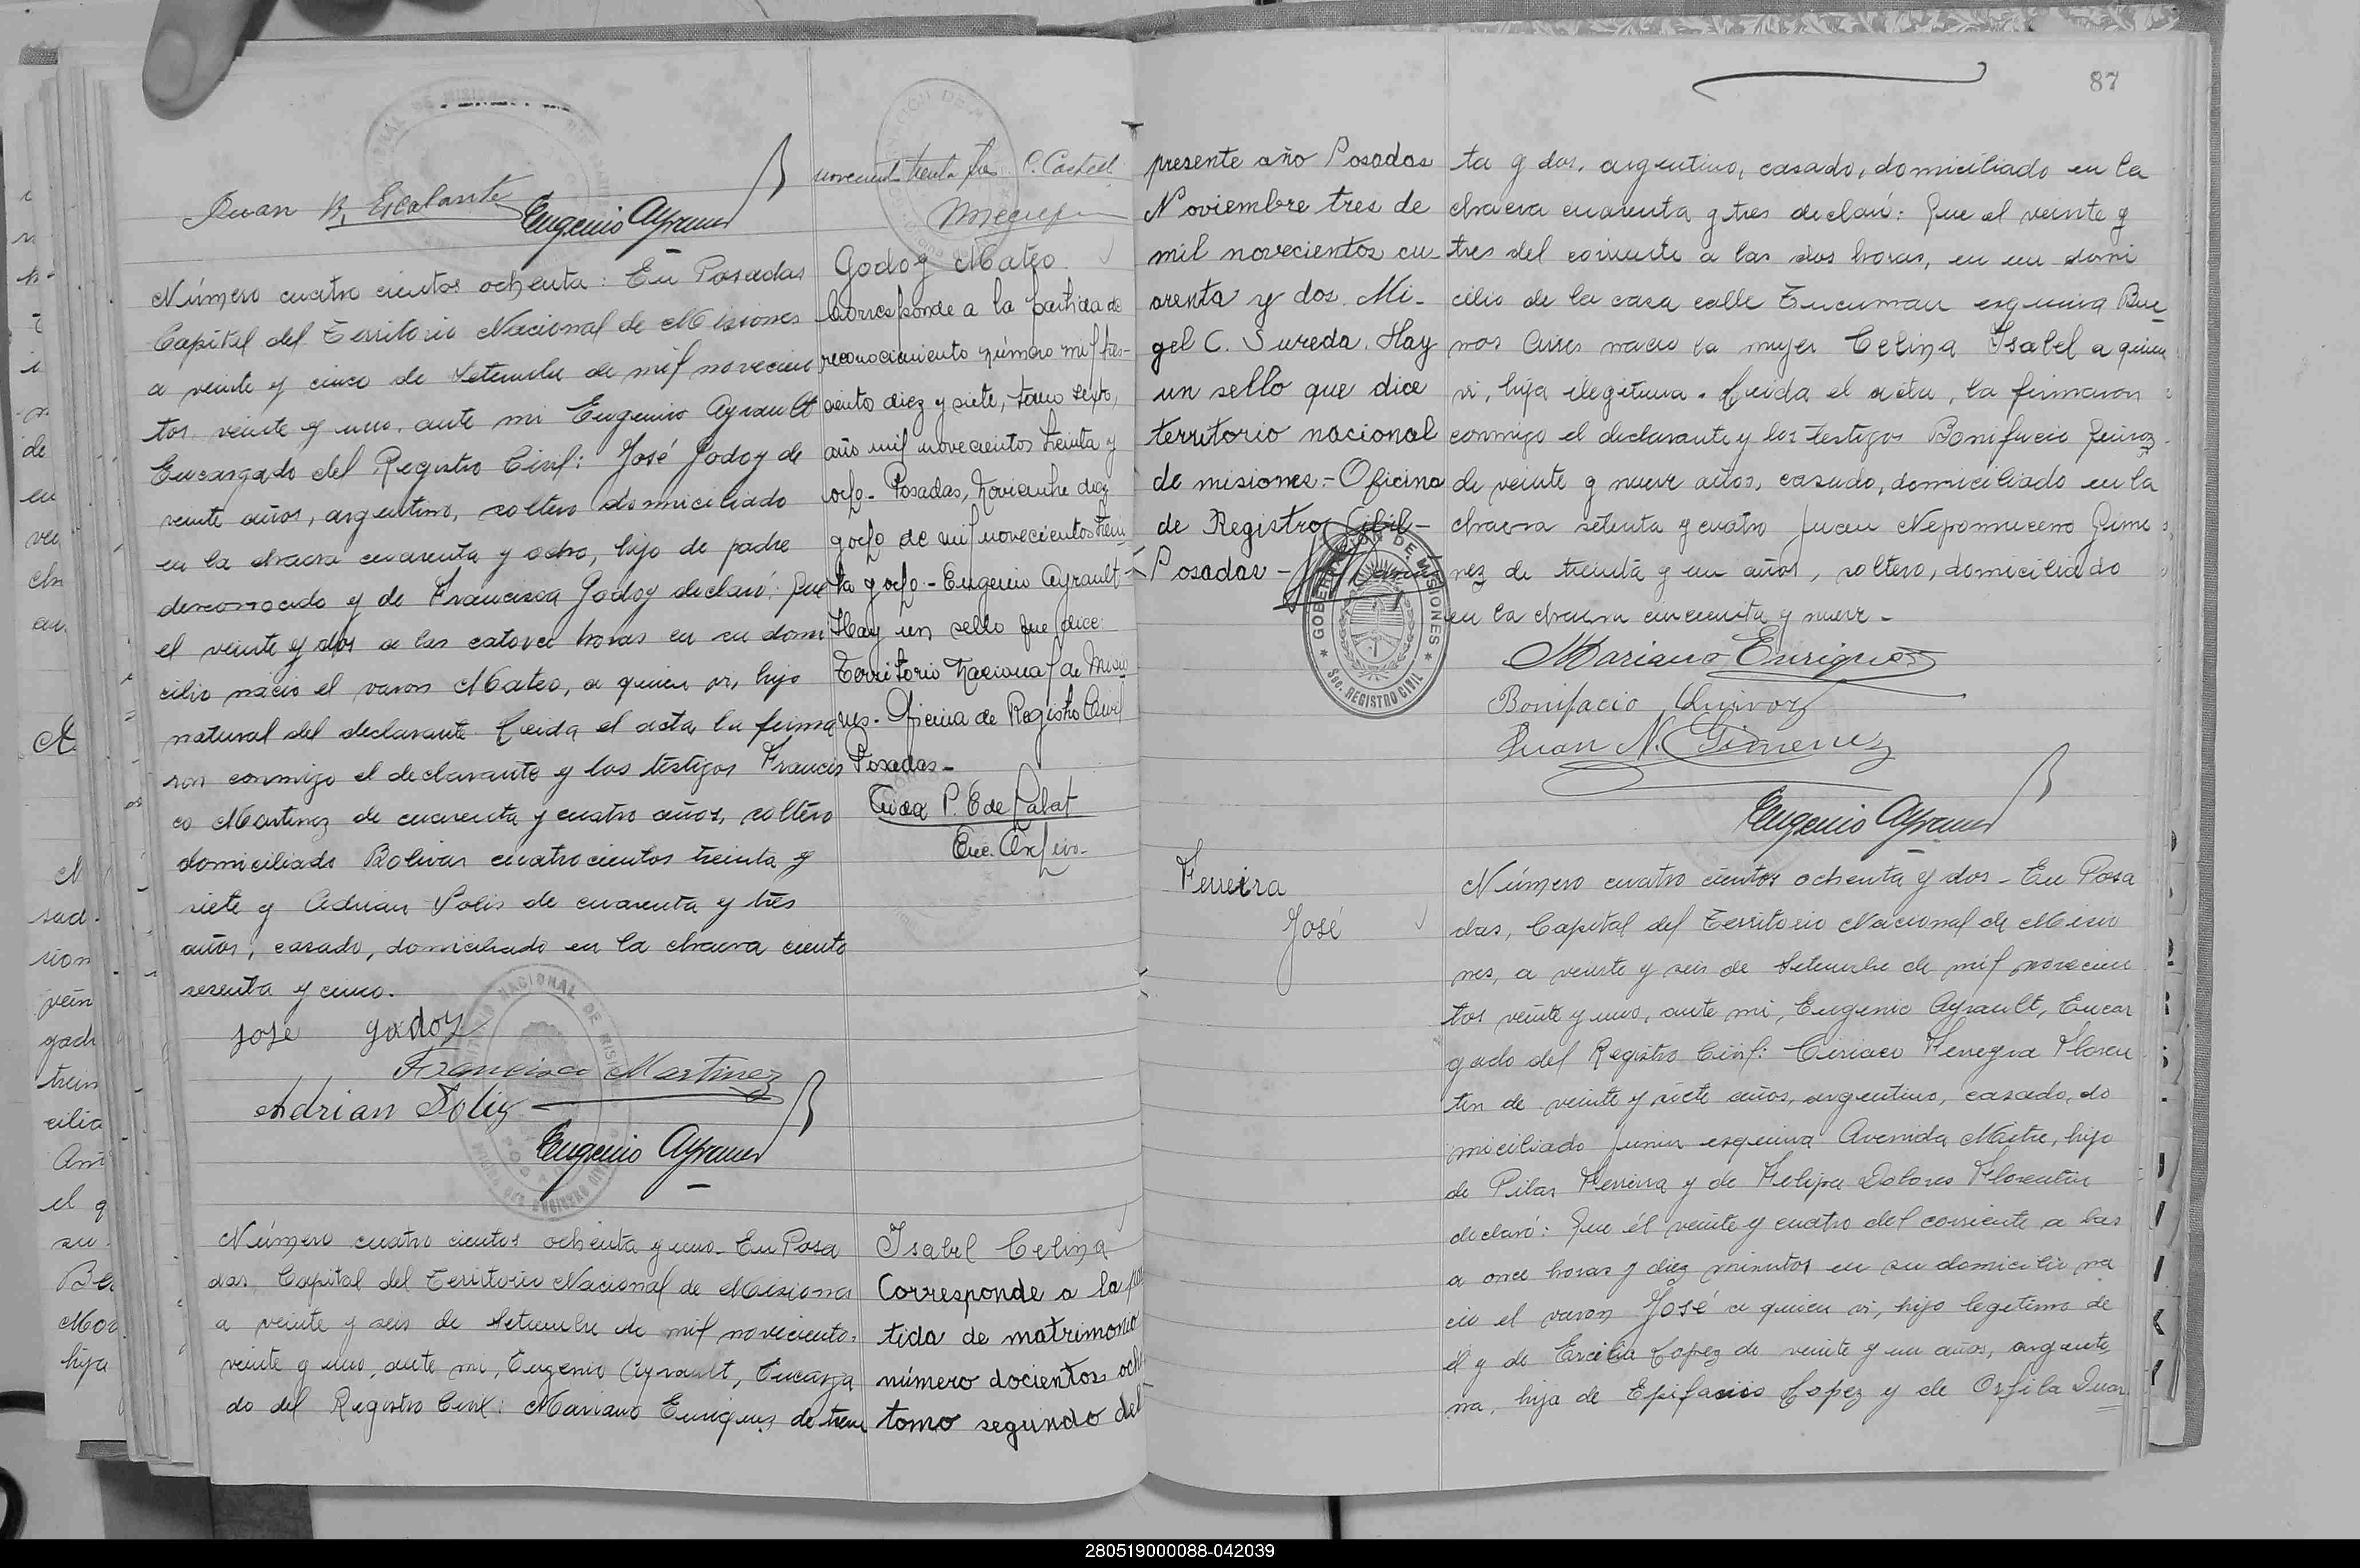 87
Juan B, Escalante
Eugenio Ayrault
Número cuatro cientos ochenta: En Posadas
Capital del Territorio Nacional de Misiones
a veinte y cinco de Setiembre de mil novecien
tos veinte y uno, ante mi Eugenio Ayrault
Encargado del Registro Civil: José Godoy de
veinte años, argentino, soltero domiciliado
en la chacra cuarenta y ocho, hijo de padre
desconocido y de Francisca Godoy declaró: Que
el veinte y dos a las catorce horas en su domi
cilio nacio el varon Mateo, a quien vi, hijo
natural del declarante. Leida el acta, la firma
ron conmigo el declarante y los testigos Francis
co Martinez de cuarenta y cuatro años, soltero
domiciliado Bolivar cuatrocientos treinta y
siete y Adrian Solis de cuarenta y tres
años, casado, domiciliado en la chacra ciento
sesenta y cinco.
jose godoy
Francisco Martinez
Adrian Soliz
Eugenio Ayrault
Número cuatro cientos ochenta y uno. En Posa
das, Capital del Territorio Nacional de Misiones
a veinte y seis de Setiembre de mil noveciento.
veinte y uno, ante mi, Eugenio Ayrault, Encarga
do del Registro Civil: Mariano Enriquez de trein
treinta tres
Godoy Mateo
Corresponde a la partida de
reconocimiento número mil tres-
ciento diez y siete, tomo sexto,
año mil novecientos treinta y
ocho- Posadas, Noviembre diez
y ocho de mil novecientos trein
ta y ocho- Eugenio Ayrault-
Hay un sello que dice:
Territorio Nacional de Misio
nes- Oficina de Registro Civil
Posadas-
P. E de Labat
Enc. Archivo-
Isabel Celina
Corresponde a la par
tida de matrimonio
número docientos och
tomo segundo del
presente año Posadas
Noviembre tres de
mil novecientos cu-
arenta y dos. Mi-
gel C. Sureda. Hay
un sello que dice
territorio nacional
de misiones.- Oficina
de Registro Civil-
Posadas-
GOBERNACIÓN DE MISIONES
Sec. REGISTRO CIVIL
ta y dos, argentino, casado, domiciliado en la
chacra cuarenta y tres declaró: Que el veinte y
tres del corriente a las dos horas, en su domi
cilio de la casa calle Tucuman esquina Bue
nos Aires nacio la mujer Celina Isabel a quien
vi, hija ilegitima. Leida el acta, la firmaron
conmigo el declarante y los testigos Bonifacio Quiroz
de veinte y nueve años, casado, domiciliado en la
chacra setenta y cuatro Juan Nepomuceno Jime
nez de treinta y un años, soltero, domiciliado
en la chacra cincuenta y nueve-
Mariano Enriquez
Bonifacio Quiroz
Juan N. Gimenez
Eugenio Ayrault
Ferreira
José
Número cuatro cientos ochenta y dos- En Posa
das, Capital del Territorio Nacional de Misio
nes, a veinte y seis de Setiembre de mil novecien
tos veinte y uno, ante mi, Eugenio Ayrault, Encar
gado del Registro Civil: Ciriaco Ferreyra Floren
tin de veinte y siete años, argentino, casado, do
miciliado Junin esquina Avenida Mitre, hijo
de Pilar Ferreira y de Felipa Dolores Florentin
declaró: Que él veinte y cuatro del corriente a las
a once horas y diez minutos en su domicilio na
cio el varon José a quien vi, hijo legitimo de
él y de Ercilia Lopez de veinte y un años, argenti
na, hija de Epifanio Lopez y de Orfila Duar
280519000088-042039